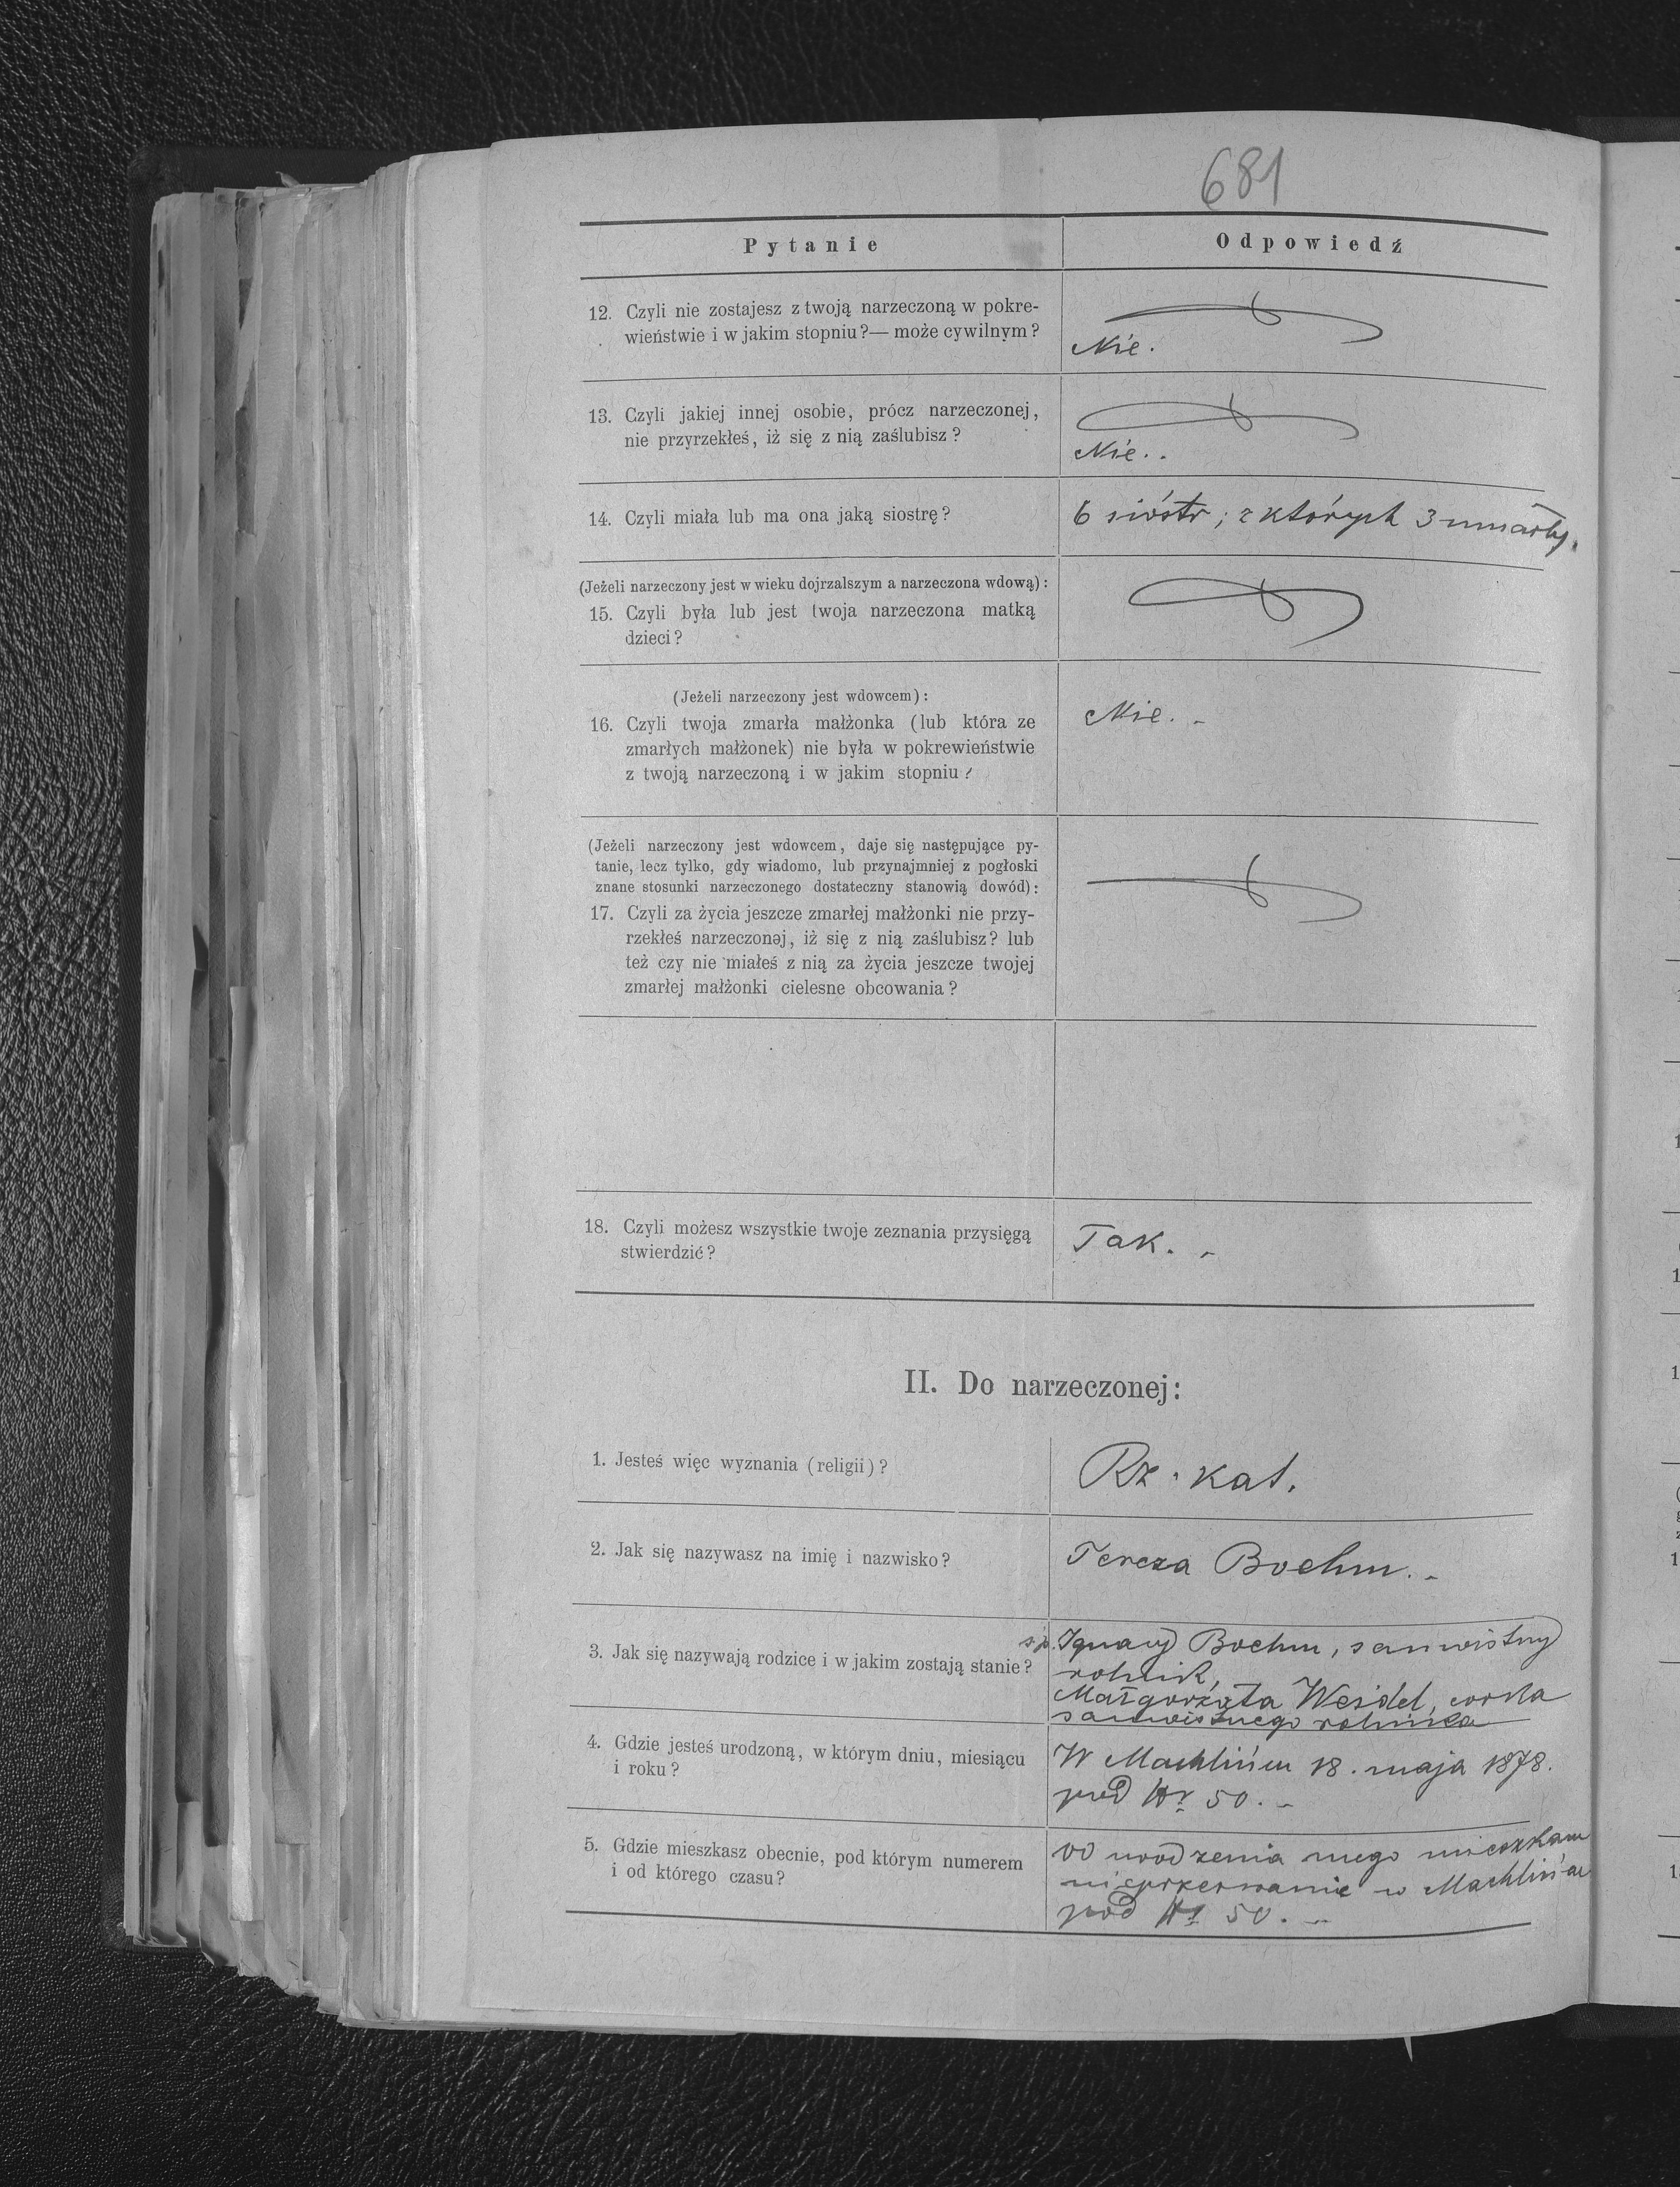 681
Pytanie
Odpowiedź
12. Czyli nie zostajesz z twoją narzeczoną w pokre-
wieństwie i w jakim stopniu?— może cywilnym?
Nie.
13. Czyli jakiej innej osobie, prócz narzeczonej,
nie przyrzekłeś, iż się z nią zaślubisz?
Nie..
14. Czyli miała lub ma ona jaką siostrę?
6 sióstr; z których 3 umarły.
(Jeżeli narzeczony jest w wieku dojrzalszym a narzeczona wdową):
15. Czyli była lub jest twoja narzeczona matką
dzieci?
(Jeżeli narzeczony jest wdowcem):
16. Czyli twoja zmarła małżonka (lub która ze
zmarłych małżonek) nie była w pokrewieństwie
z twoją narzeczoną i w jakim stopniu?
Nie. -
(Jeżeli narzeczony jest wdowcem, daje się następujące py-
tanie, lecz tylko, gdy wiadomo, lub przynajmniej z pogłoski
znane stosunki narzeczonego dostateczny stanowią dowód):
17. Czyli za życia jeszcze zmarłej małżonki nie przy-
rzekłeś narzeczonej, iż się z nią zaślubisz? lub
też czy nie miałeś z nią za życia jeszcze twojej
zmarłej małżonki cielesne obcowania?
18. Czyli możesz wszystkie twoje zeznania przysięgą
stwierdzić?
Tak. -
II. Do narzeczonej:
1. Jesteś więc wyznania (religii)?
Rz. kat.
2. Jak się nazywasz na imię i nazwisko?
Tereza Boehm. -
3. Jak się nazywają rodzice i w jakim zostają stanie?
ś.p. Ignacy Boehm, samoistny
rolnik,
Małgorzata Weidel, córka
samoistnego rolnika
4. Gdzie jesteś urodzoną, w którym dniu, miesiącu
i roku?
W Machlińcu 18. maja 1878.
pod Nr 50. -
5. Gdzie mieszkasz obecnie, pod którym numerem
i od którego czasu?
od urodzenia mego mieszkam
nieprzerwanie w Machlińcu
pod Nr 50. -